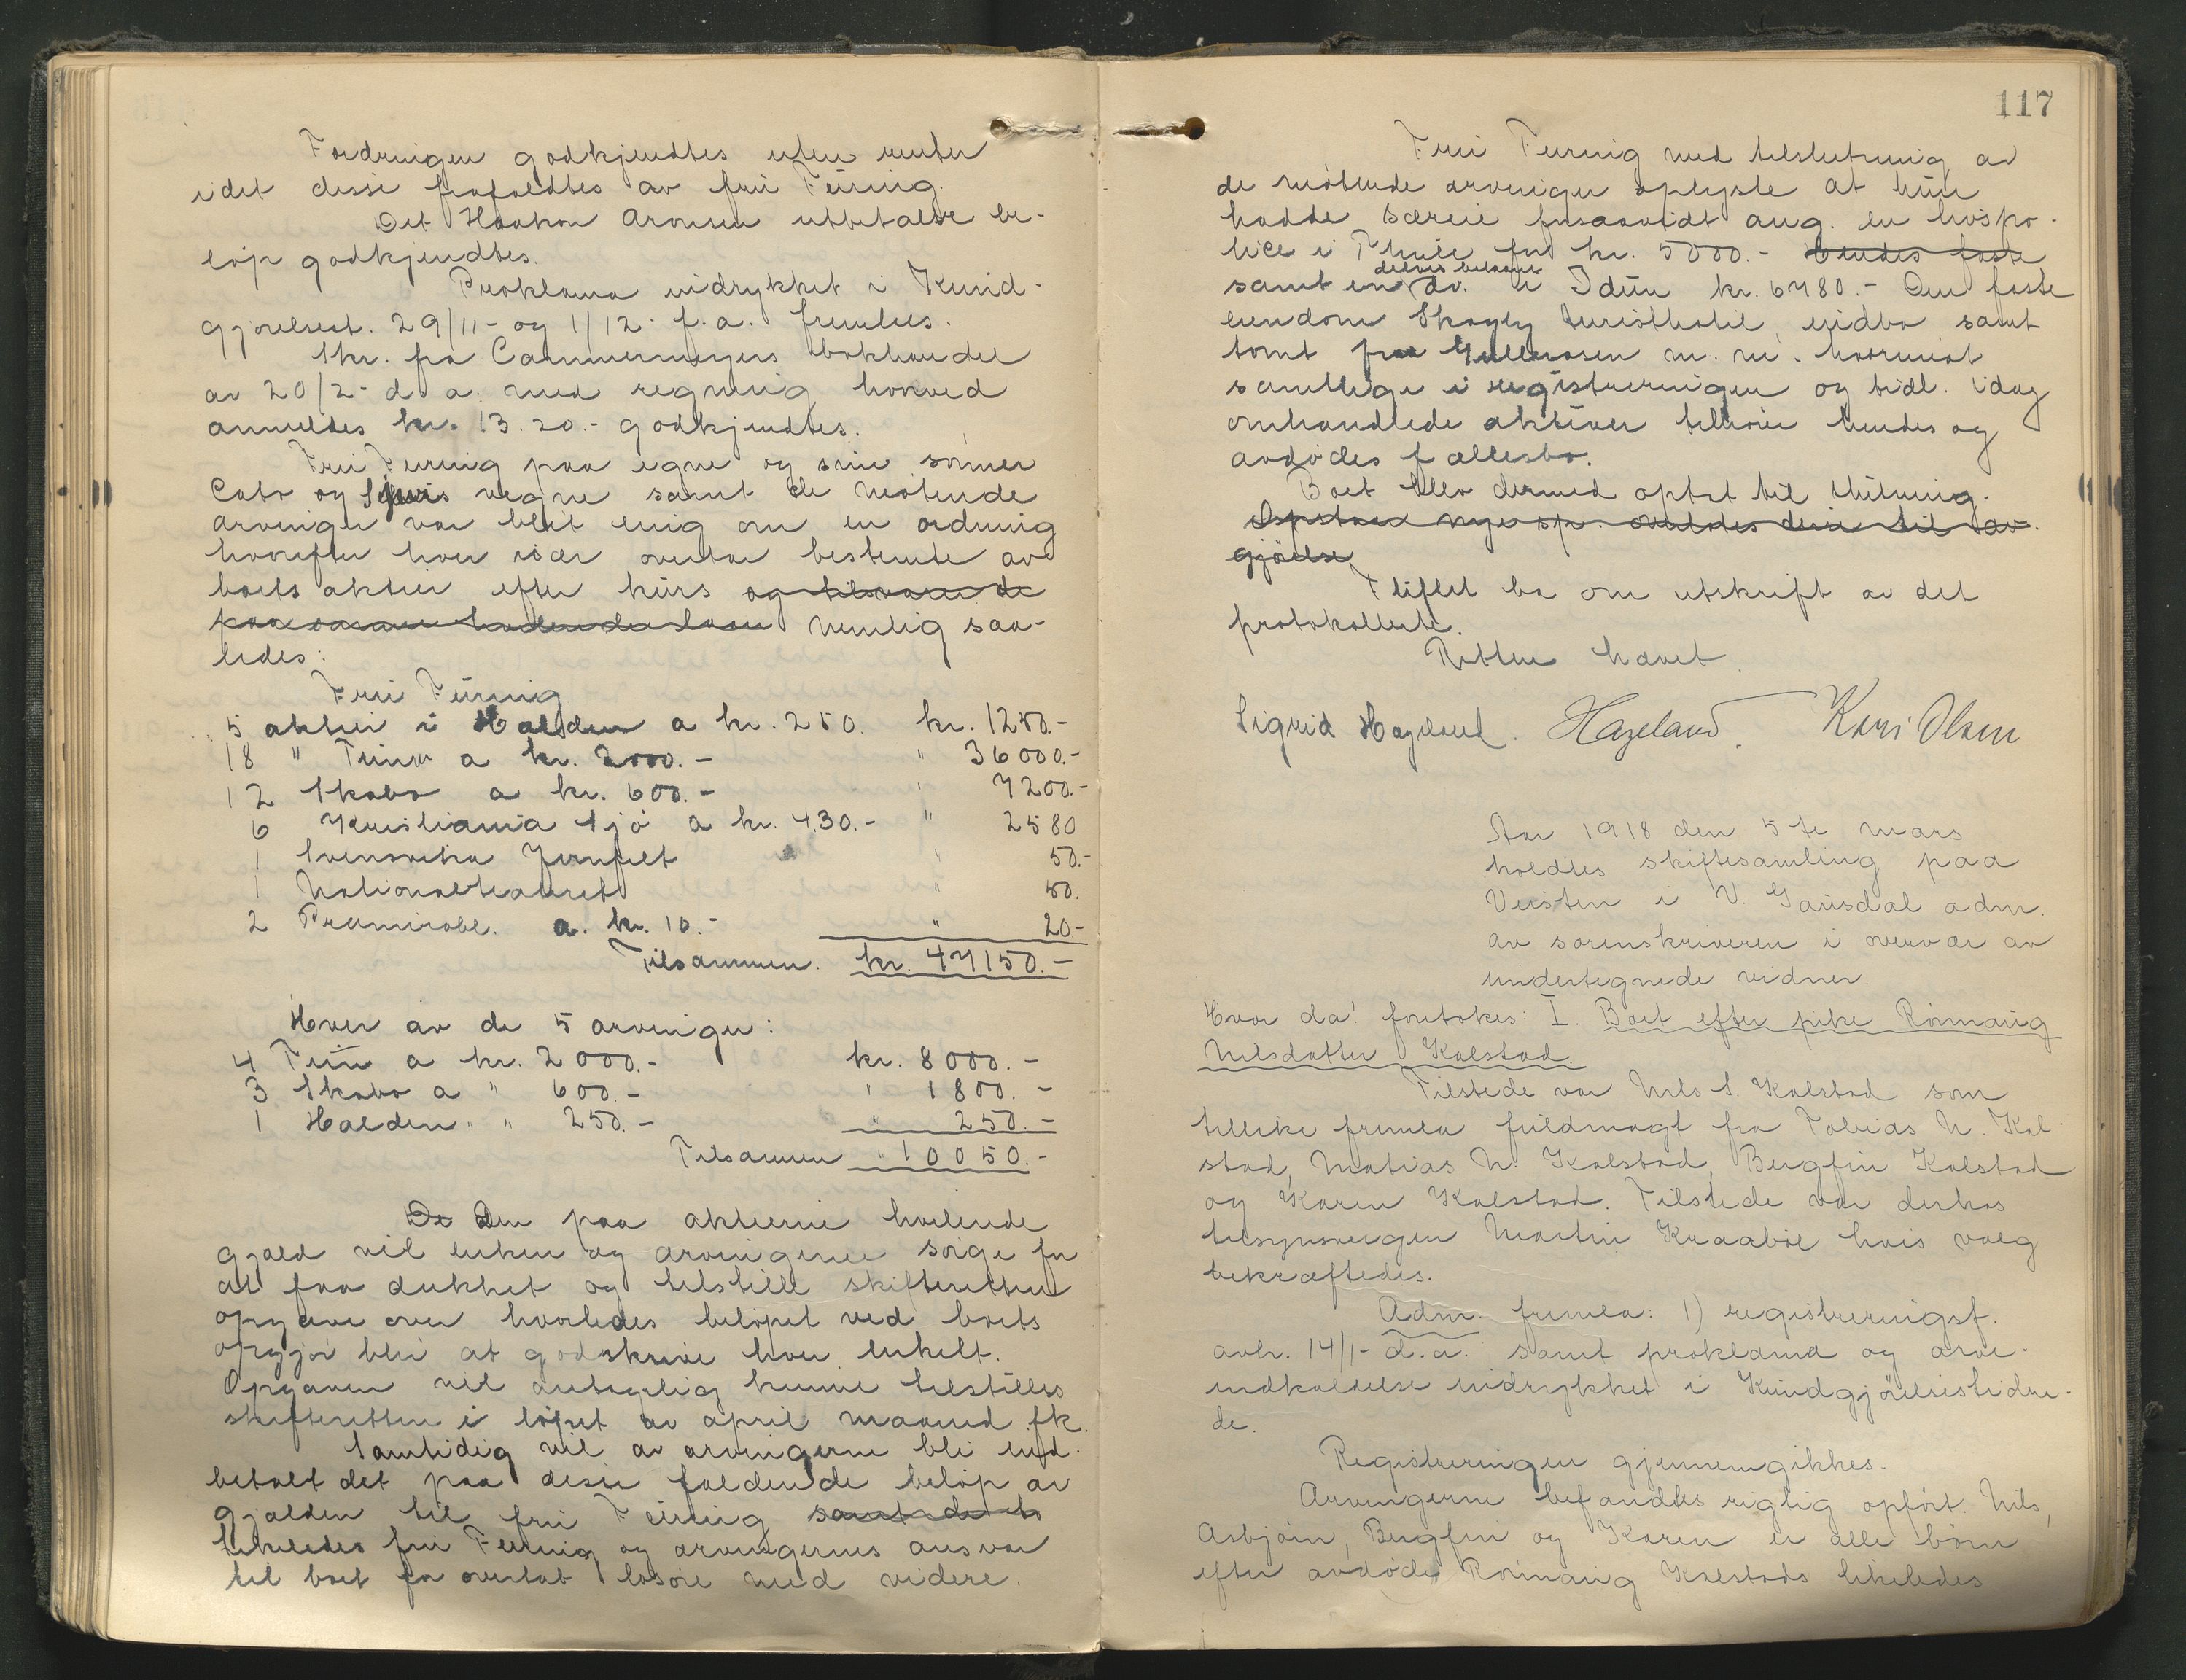 Fordringen godkjendtes uten renter
idet disse frafaldtes av fru Feiring.
Det Haakon Aronsen utbetalte be-
løp godkjendtes.
Proklama indrykket i Kund-
gjørelsest. 29/11- og 1/12- f.a. fremlaes.
Skr. fra Cammermeyers bokhandel
av 20/2- d. a. med regning hvorved
anmeldes kr. 13.20.- godkjendtes.
Fru Feiring paa egne og sine sønner
Cato og vegne samt de møtende
arvinger var blit enig om en ordning
hvorefter hver især overtar bestemte av
boets aktier efter kurs og tilsvarende
paa samme hvilende laan nemlig saa-
ledes:
Fru Feiring
5 aktier i Halden a kr. 250. kr. 1250.-
18 " a kr. 2000.- " 36000.-
12 Skabo a kr. 600.- " 7200.-
6 Kristiania Sjø a kr. 430.- " 2580
1 Jernfelt " 50.-
1 Nationalteateret " 50.
2 Premieobl. a. kr. 10.- " 20.-
Tilsammen. kr. 47150.-
Hver av de 5 arvinger:
4 a kr. 2000.- kr. 8000.-
3 Skabo a " 600.- " 1800.-
1 Halden " " 250.- " 250.-
Tilsammen " 10050.-
De Den paa aktierne hvilende
gjæld vil enken og arvingerne sørge for
at faa dækket og tilstille skifteretten
opgave over hvorledes beløpet ved boets
opgjør blir at godskrive hver enkelt.
Opgaven vil antagelig kunne tilstilles
skifteretten i løpet av april maaned f.k.
Samtidig vil av arvingerne bli ind-
betalt det paa disse faldende beløp av
gjælden til fru Feiring samt dets
likeledes fru Feiring og arvingernes ansvar
til boet for overtat løsøre med videre.
117
Fru Feiring med tilslutning av
de møtende arvinger oplyste at hun
hadde særeie forsaavidt ang. en livspo-
lice i Thule for kr. 5000.- Hendes faste
samt en delvis betalt do. i Idun kr. 6480.- Den faste
eiendom Skogly turisthotel, indbo samt
tomt fra Gullmosen m. m. hvorimot
samtlige i registreringen og tidl. idag
omhandlede aktiver tilhører hendes og
avdødes fællesbo.
Boet blev dermed optat til slutning.
Opstaar nye sp. overlates disse til av-
gjørelse
Skiftet ba om utskrift av det
protokollerte.
Retten hævet.
Sigrid Hageland. Hageland. Kari Olsen
Aar 1918 den 5te mars
holdtes skiftesamling paa
Veisten i V. Gausdal adm.
av sorenskriveren i overvær av
undertegnede vidner.
Hvor da! foretokes: I. Boet efter pike Rønnaug
Nilsdatter Kalstad.
Tilstede var Nils S. Kalstad som
tillike fremla fuldmagt fra Tobias N. Kal-
stad, Matias N. Kalstad, Bergfin Kalstad
og Karen Kalstad. Tilstede var derhos
tilsynsvergen Martin Kraabøl hvis valg
bekræftedes.
Adm. fremla: 1) registreringsf.
avh. 14/1- d.a. samt proklama og arve-
indkaldelse indrykket i Kundgjørelsestiden-
de.
Registreringen gjennemgikkes.
Arvingerne befandtes rigtig opført. Nils,
Asbjørn, Bergfin og Karen er alle børn
efter avdøde Rønnaug Kalstads likeledes